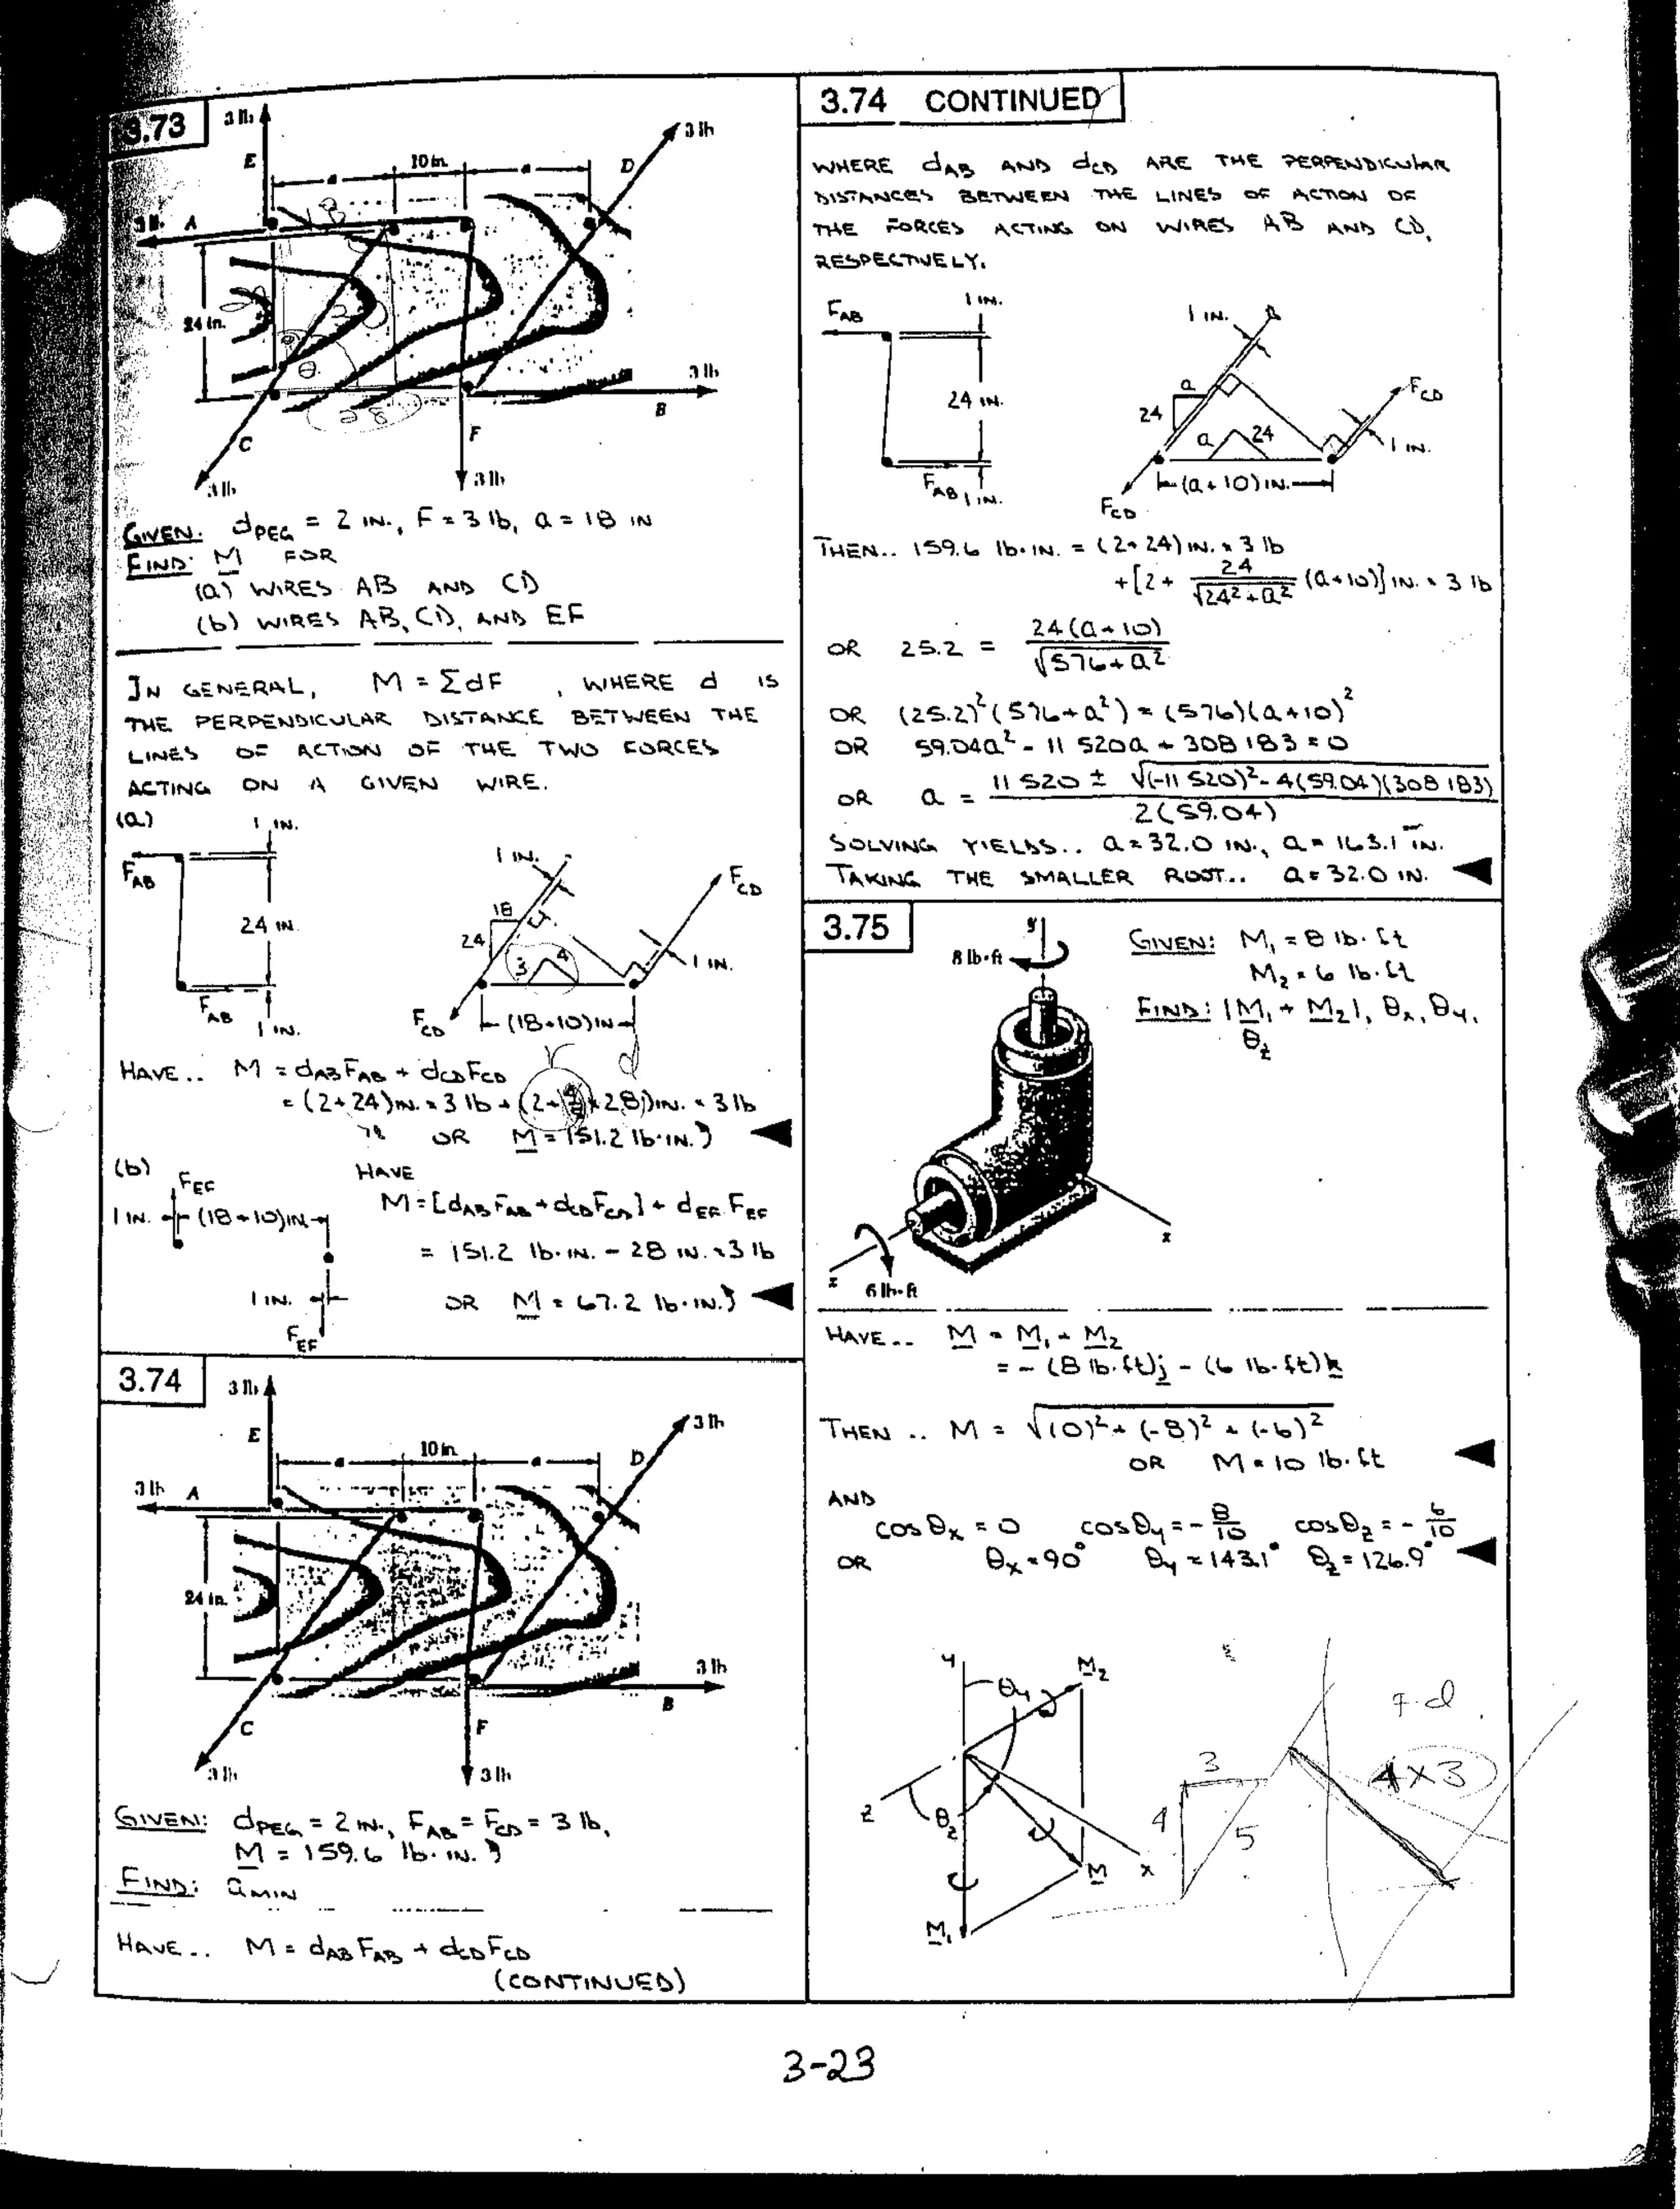 3.73
3 lb
E
a
10 in.
a
D
3 lb
3 lb
A
18
24 in.
θ
28
3 lb
B
C
F
3 lb
3 lb
GIVEN: dPEG = 2 IN., F = 3 lb, a = 18 IN
FIND: M FOR
(a) WIRES AB AND CD
(b) WIRES AB, CD, AND EF
IN GENERAL, M = ΣdF , WHERE d IS
THE PERPENDICULAR DISTANCE BETWEEN THE
LINES OF ACTION OF THE TWO FORCES
ACTING ON A GIVEN WIRE.
(a)
1 IN.
FAB
24 IN.
FAB
1 IN.
1 IN.
FCD
18
24
3 4
1 IN.
FCD
(18+10) IN
d
HAVE.. M = dAB FAB + dCD FCD
= (2+24) IN. × 3 lb + (2 + 4/5 × 28) IN. × 3 lb
78
OR M = 151.2 lb·IN.
(b)
FEF
1 IN.
(18+10) IN
1 IN.
FEF
HAVE
M = [dAB FAB + dCD FCD] + dEF FEF
= 151.2 lb·IN. - 28 IN. × 3 lb
OR M = 67.2 lb·IN.
3.74
3 lb
E
a
10 in.
a
D
3 lb
3 lb
A
24 in.
3 lb
B
C
F
3 lb
3 lb
GIVEN: dPEG = 2 IN., FAB = FCD = 3 lb,
M = 159.6 lb·IN.
FIND: aMIN
HAVE.. M = dAB FAB + dCD FCD
(CONTINUED)
3.74 CONTINUED
WHERE dAB AND dCD ARE THE PERPENDICULAR
DISTANCES BETWEEN THE LINES OF ACTION OF
THE FORCES ACTING ON WIRES AB AND CD,
RESPECTIVELY.
FAB
1 IN.
24 IN.
FAB
1 IN.
1 IN.
a
24
a 24
FCD
1 IN.
(a+10) IN.
FCD
THEN.. 159.6 lb·IN. = (2+24) IN. × 3 lb
+ [2 + 24/√(24²+a²) (a+10)] IN. × 3 lb
OR 25.2 = 24(a+10)/√(576+a²)
OR (25.2)²(576+a²) = (576)(a+10)²
OR 59.04a² - 11 520a + 308 183 = 0
OR a = 11 520 ± √((-11 520)² - 4(59.04)(308 183)) / 2(59.04)
SOLVING YIELDS.. a = 32.0 IN., a = 163.1 IN.
TAKING THE SMALLER ROOT.. a = 32.0 IN.
3.75
y
8 lb·ft
GIVEN: M1 = 8 lb·ft
M2 = 6 lb·ft
FIND: |M1 + M2|, θx, θy,
θz
x
z
6 lb·ft
HAVE.. M = M1 + M2
= -(8 lb·ft)j - (6 lb·ft)k
THEN.. M = √((0)² + (-8)² + (-6)²)
OR M = 10 lb·ft
AND
cosθx = 0 cosθy = - 8/10 cosθz = - 6/10
OR θx = 90° θy = 143.1° θz = 126.9°
y
θy
M2
z
θz
M
x
M1
3
4
5
F·d
4×3
3-23